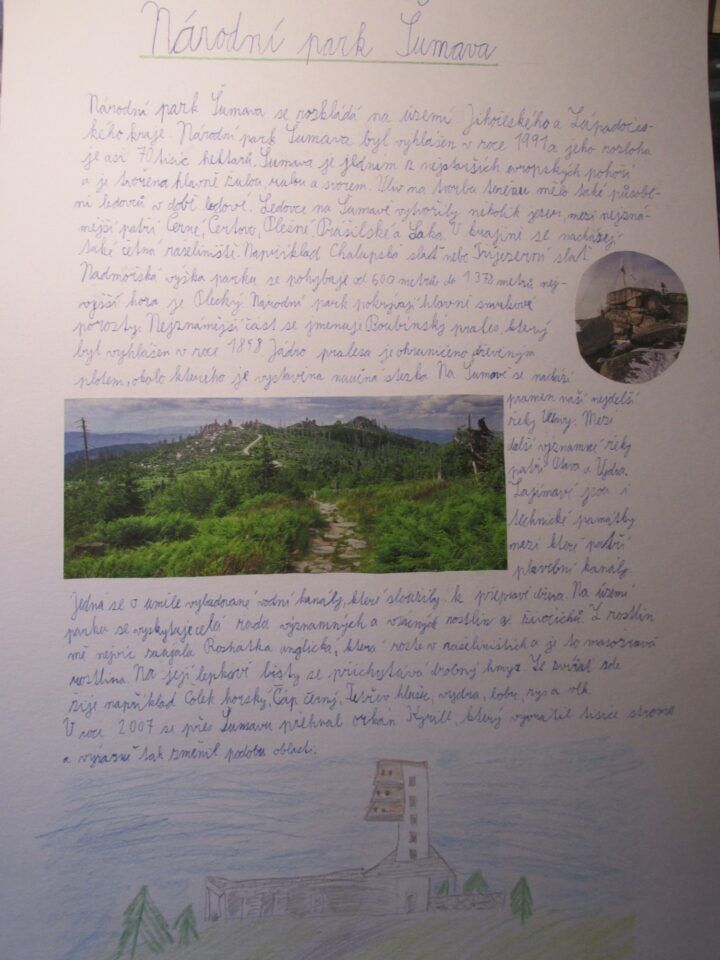 Národní park Šumava
Národní park Šumava se rozkládá na území Jihočeského a Západočes-
kého kraje. Národní park Šumava byl vyhlášen v roce 1991 a jeho rozloha
je asi 70 tisíc hektarů. Šumava je jedním z nejstarších evropských pohoří
a je tvořena hlavně žulou, rulou a svorem. Vliv na tvorbu terenu mělo také působe-
ní ledovců v době ledové. Ledovce na Šumavě vytvořily několik jezer, mezi nejzná-
mější patří Černé, Čertovo, Plešné, Prašilské a Laka. V krajině se nacházejí
také četná rašeliniště. Například Chalupská slať nebo Tříjezerní slať
Nadmořská výška parku se pohybuje od 600 metrů do 1 378 metrů nej-
vyšší hora je Plechý Národní park pokrývají hlavní smrkové
porosty. Nejznámější část se jmenuje Boubínský prales, který
byl vyhlášen v roce 1858 Jádro pralesa je ohraničeno dřevěným
plotem, okolo kterého je vystavěna naučná stezka Na Šumavě se nachází
pramen naší nejdelší
řeky Vltavy. Mezi
další významné řeky
patří Otava a Vydra.
Zajímavé jsou i
technické památky
mezi které patří
plavební kanály
Jedná se o uměle vybudované vodní kanály, které sloužily k přepravě dřeva. Na území
parku se vyskytuje celá řada významných a vzácných rostlin a živočichů. Z rostlin
mě nejvíc zaujala Rosnatka anglická, která roste v rašeliništích a je to masožravá
rostlina. Na její lepkavé listy se přichytává drobný hmyz. Ze zvířat zde
žije například Čolek horský, Čáp černý, Tetřev hlušec, vydra, bobr, rys a vlk
V roce 2007 se přes Šumavu přehnal orkán Kyrill, který vyvrátil tisíce stromů
a výrazně tak změnil podobu oblasti.